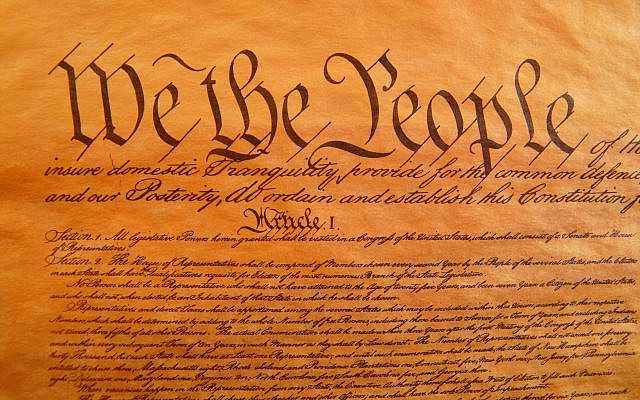 We the People of the
insure domestic Tranquility, provide for the common defence
and our Posterity, do ordain and establish this Constitution f
Article. I.
Section. 1. All legislative Powers herein granted shall be vested in a Congress of the United States, which shall consist of a Senate and House
of Representatives.
Section. 2. The House of Representatives shall be composed of Members chosen every second Year by the People of the several States, and the Electors
in each State shall have Qualifications requisite for Electors of the most numerous Branch of the State Legislature.
No Person shall be a Representative who shall not have attained to the Age of twenty five Years, and been seven Years a Citizen of the United States,
and who shall not, when elected, be an Inhabitant of that State in which he shall be chosen.
Representatives and direct Taxes shall be apportioned among the several States which may be included within this Union, according to their respective
Numbers, which shall be determined by adding to the whole Number of free Persons, including those bound to Service for a Term of Years, and excluding Indians
not taxed, three fifths of all other Persons. The actual Enumeration shall be made within three Years after the first Meeting of the Congress of the United States,
and within every subsequent Term of ten Years, in such Manner as they shall by Law direct. The Number of Representatives shall not exceed one for every
thirty Thousand, but each State shall have at Least one Representative; and until such enumeration shall be made, the State of New Hampshire shall be
entitled to chuse three, Massachusetts eight, Rhode Island and Providence Plantations one, Connecticut five, New York six, New Jersey four, Pennsylvania
eight, Delaware one, Maryland six, Virginia ten, North Carolina five, South Carolina five, and Georgia three.
When vacancies happen in the Representation from any State, the Executive Authority thereof shall issue Writs of Election to fill such Vacancies.